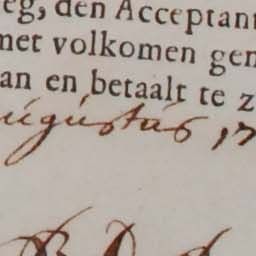 eg, den Acceptant
met volkomen gen
an en betaalt te z
augustus 17